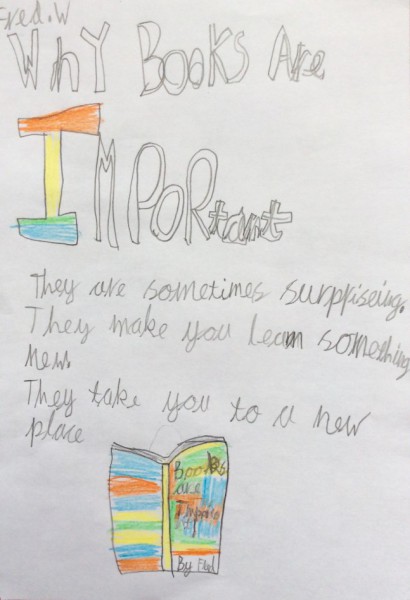 Fred.W
WhY BOOKS Are
IMPORtant
They are sometimes surpriseing.
They make you learn something
new.
They take you to a new
place
Books
are
By Fred